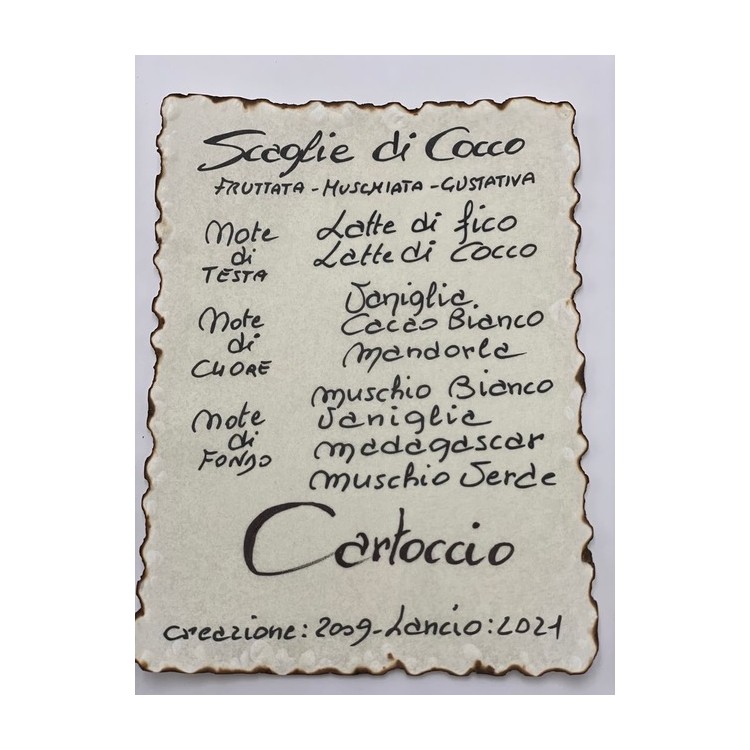 Scaglie di Cocco
FRUTTATA - MUSCHIATA - GUSTATIVA
Note di TESTA
Latte di fico
Latte di Cocco
Note di CUORE
Vaniglia
Cacao Bianco
Mandorla
Note di FONDO
Muschio Bianco
Vaniglia
Madagascar
Muschio Verde
Cartoccio
creazione: 2009 - Lancio: 2021